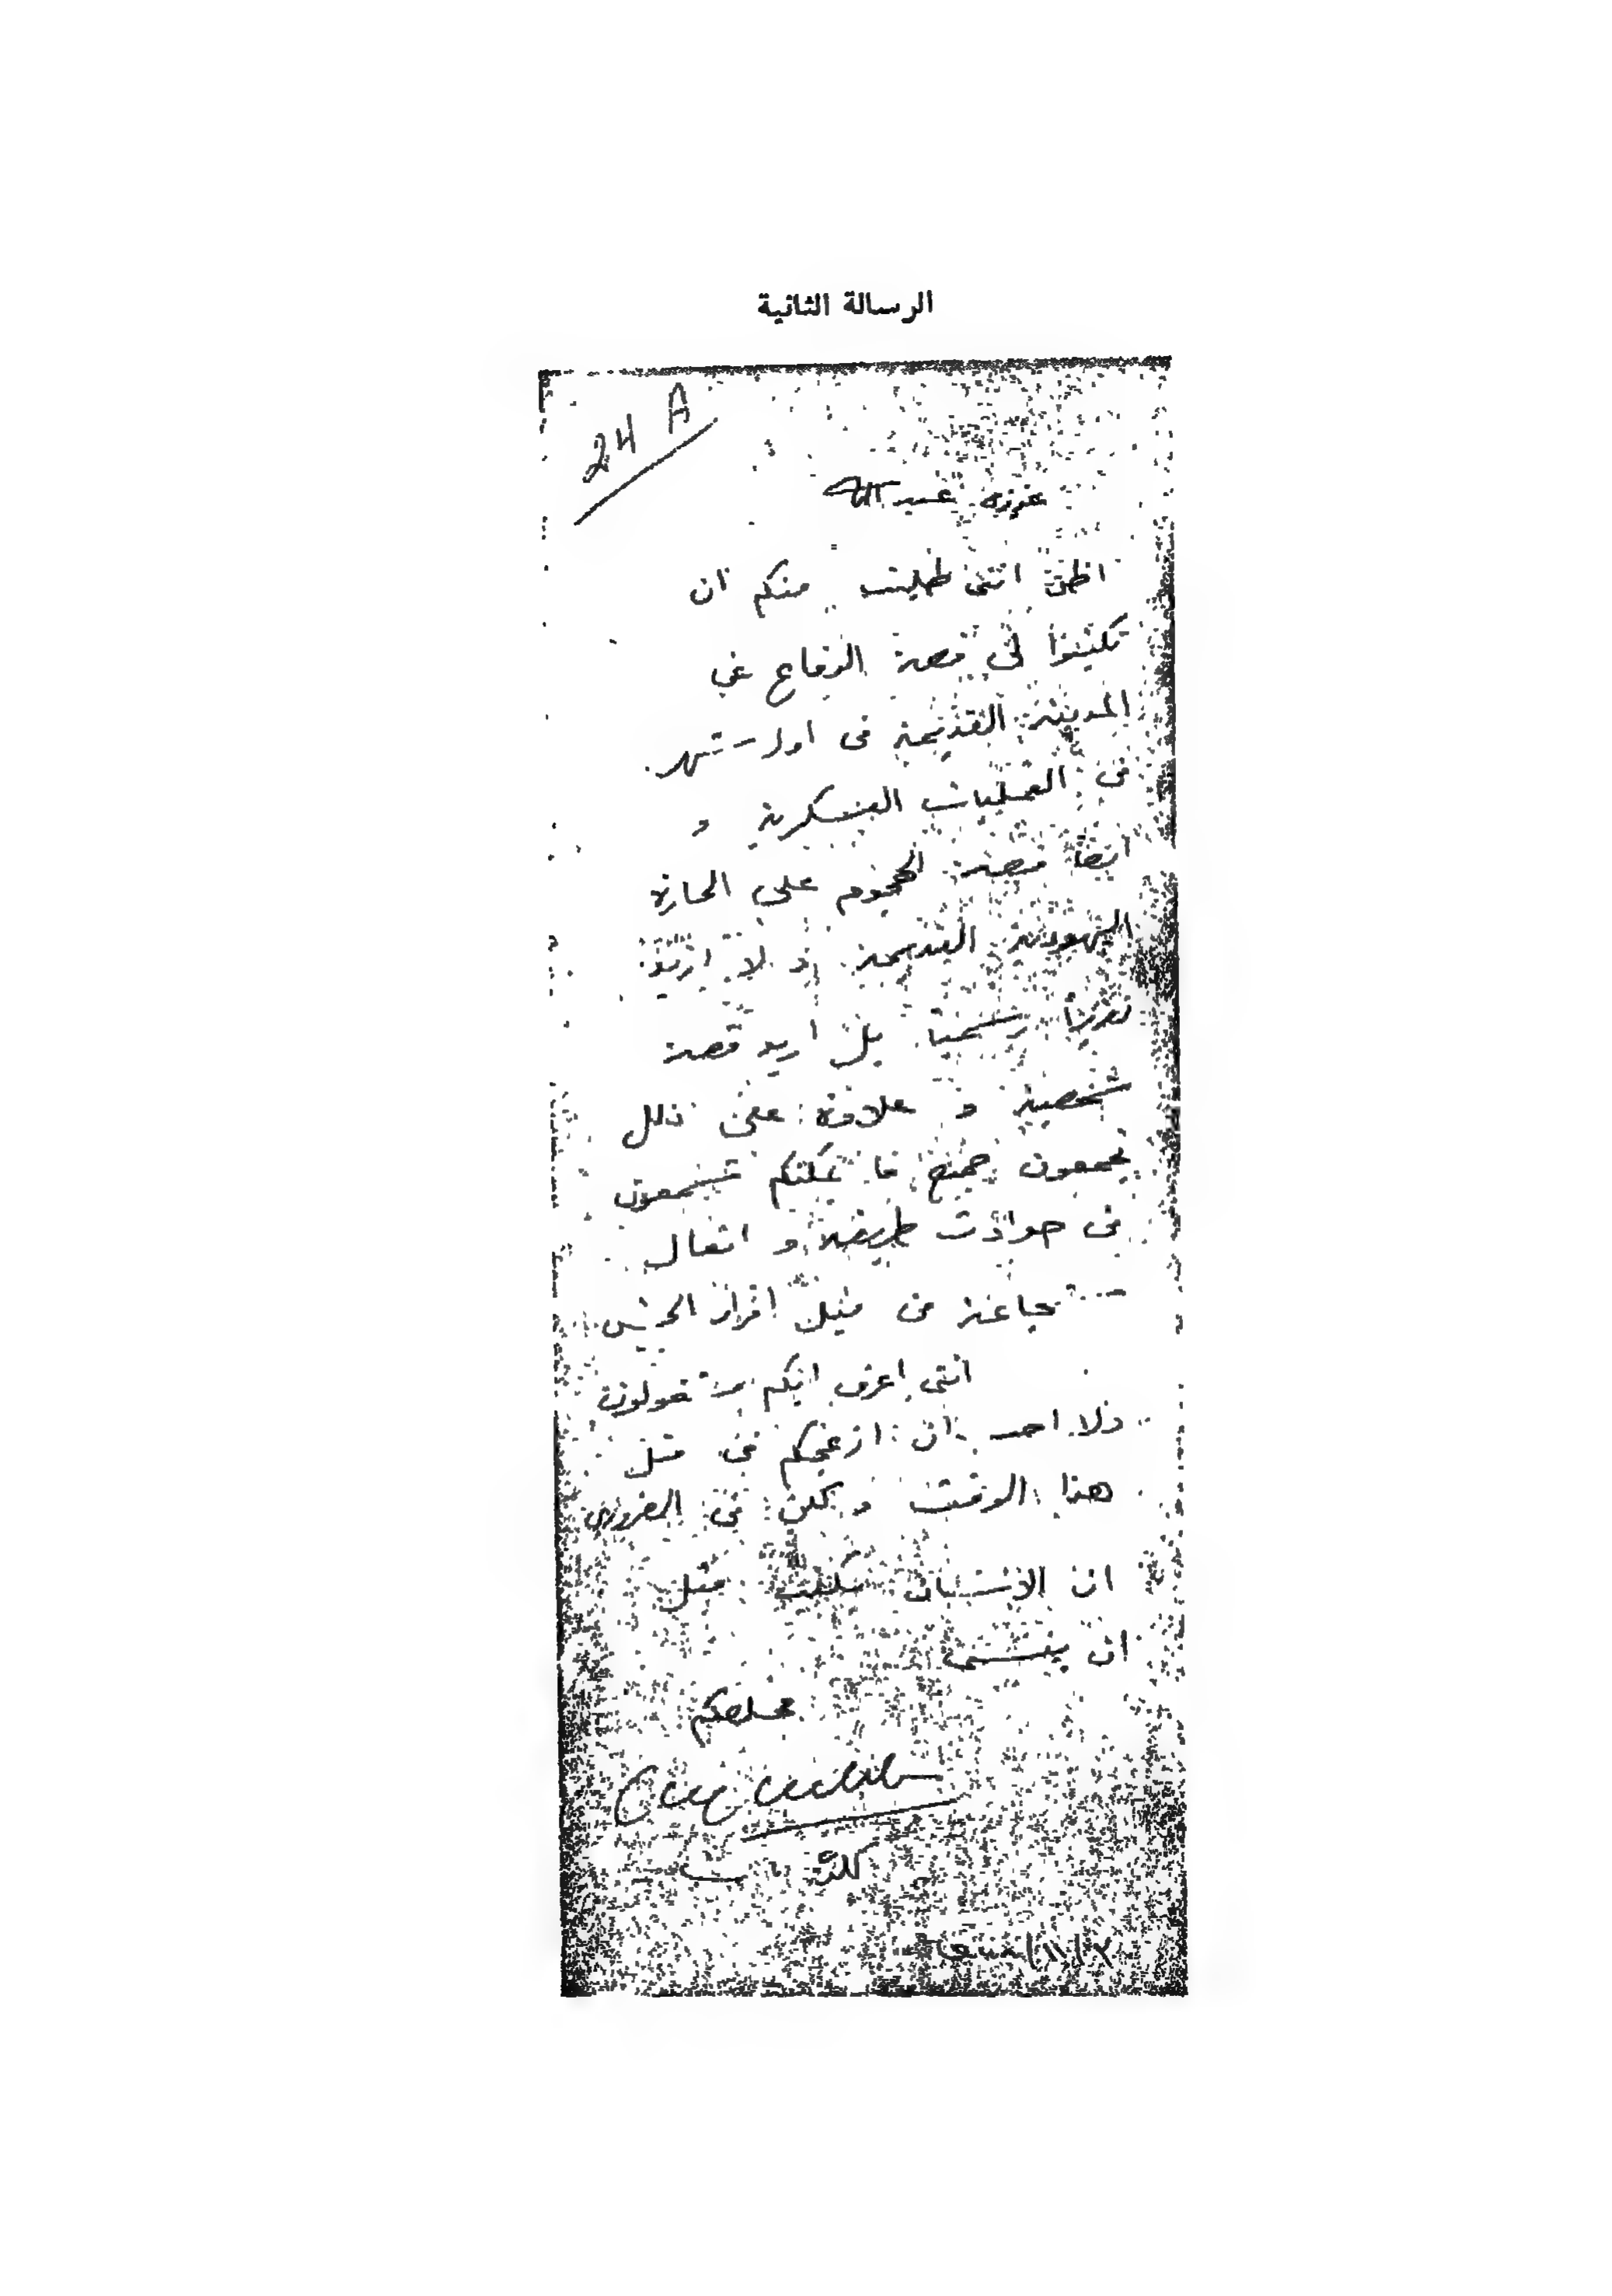 الرسالة الثانية
24 A
عزيزي عبدالله
اظن انني طلبت منكم ان
تكتبوا لي قصة الدفاع عن
المدينة القديمة في اول شهر
من العمليات العسكرية و
ايضاً قصة الهجوم على الحارة
اليهودية القديمة و لا اريد
تقريراً رسمياً بل اريد قصة
شخصية و علاوة على ذلك
تجمعون جميع ما يمكنكم تسمعون
من حوادث طريفة و افعال
شجاعة من قبل افراد الجيش
انني اعرف انكم مشغولون
ولا احب ان ازعجكم في مثل
هذا الوقت و لكن من الضروري
ان الانسان يكتب قبل
ان ينسى
مخلصكم
كلوب